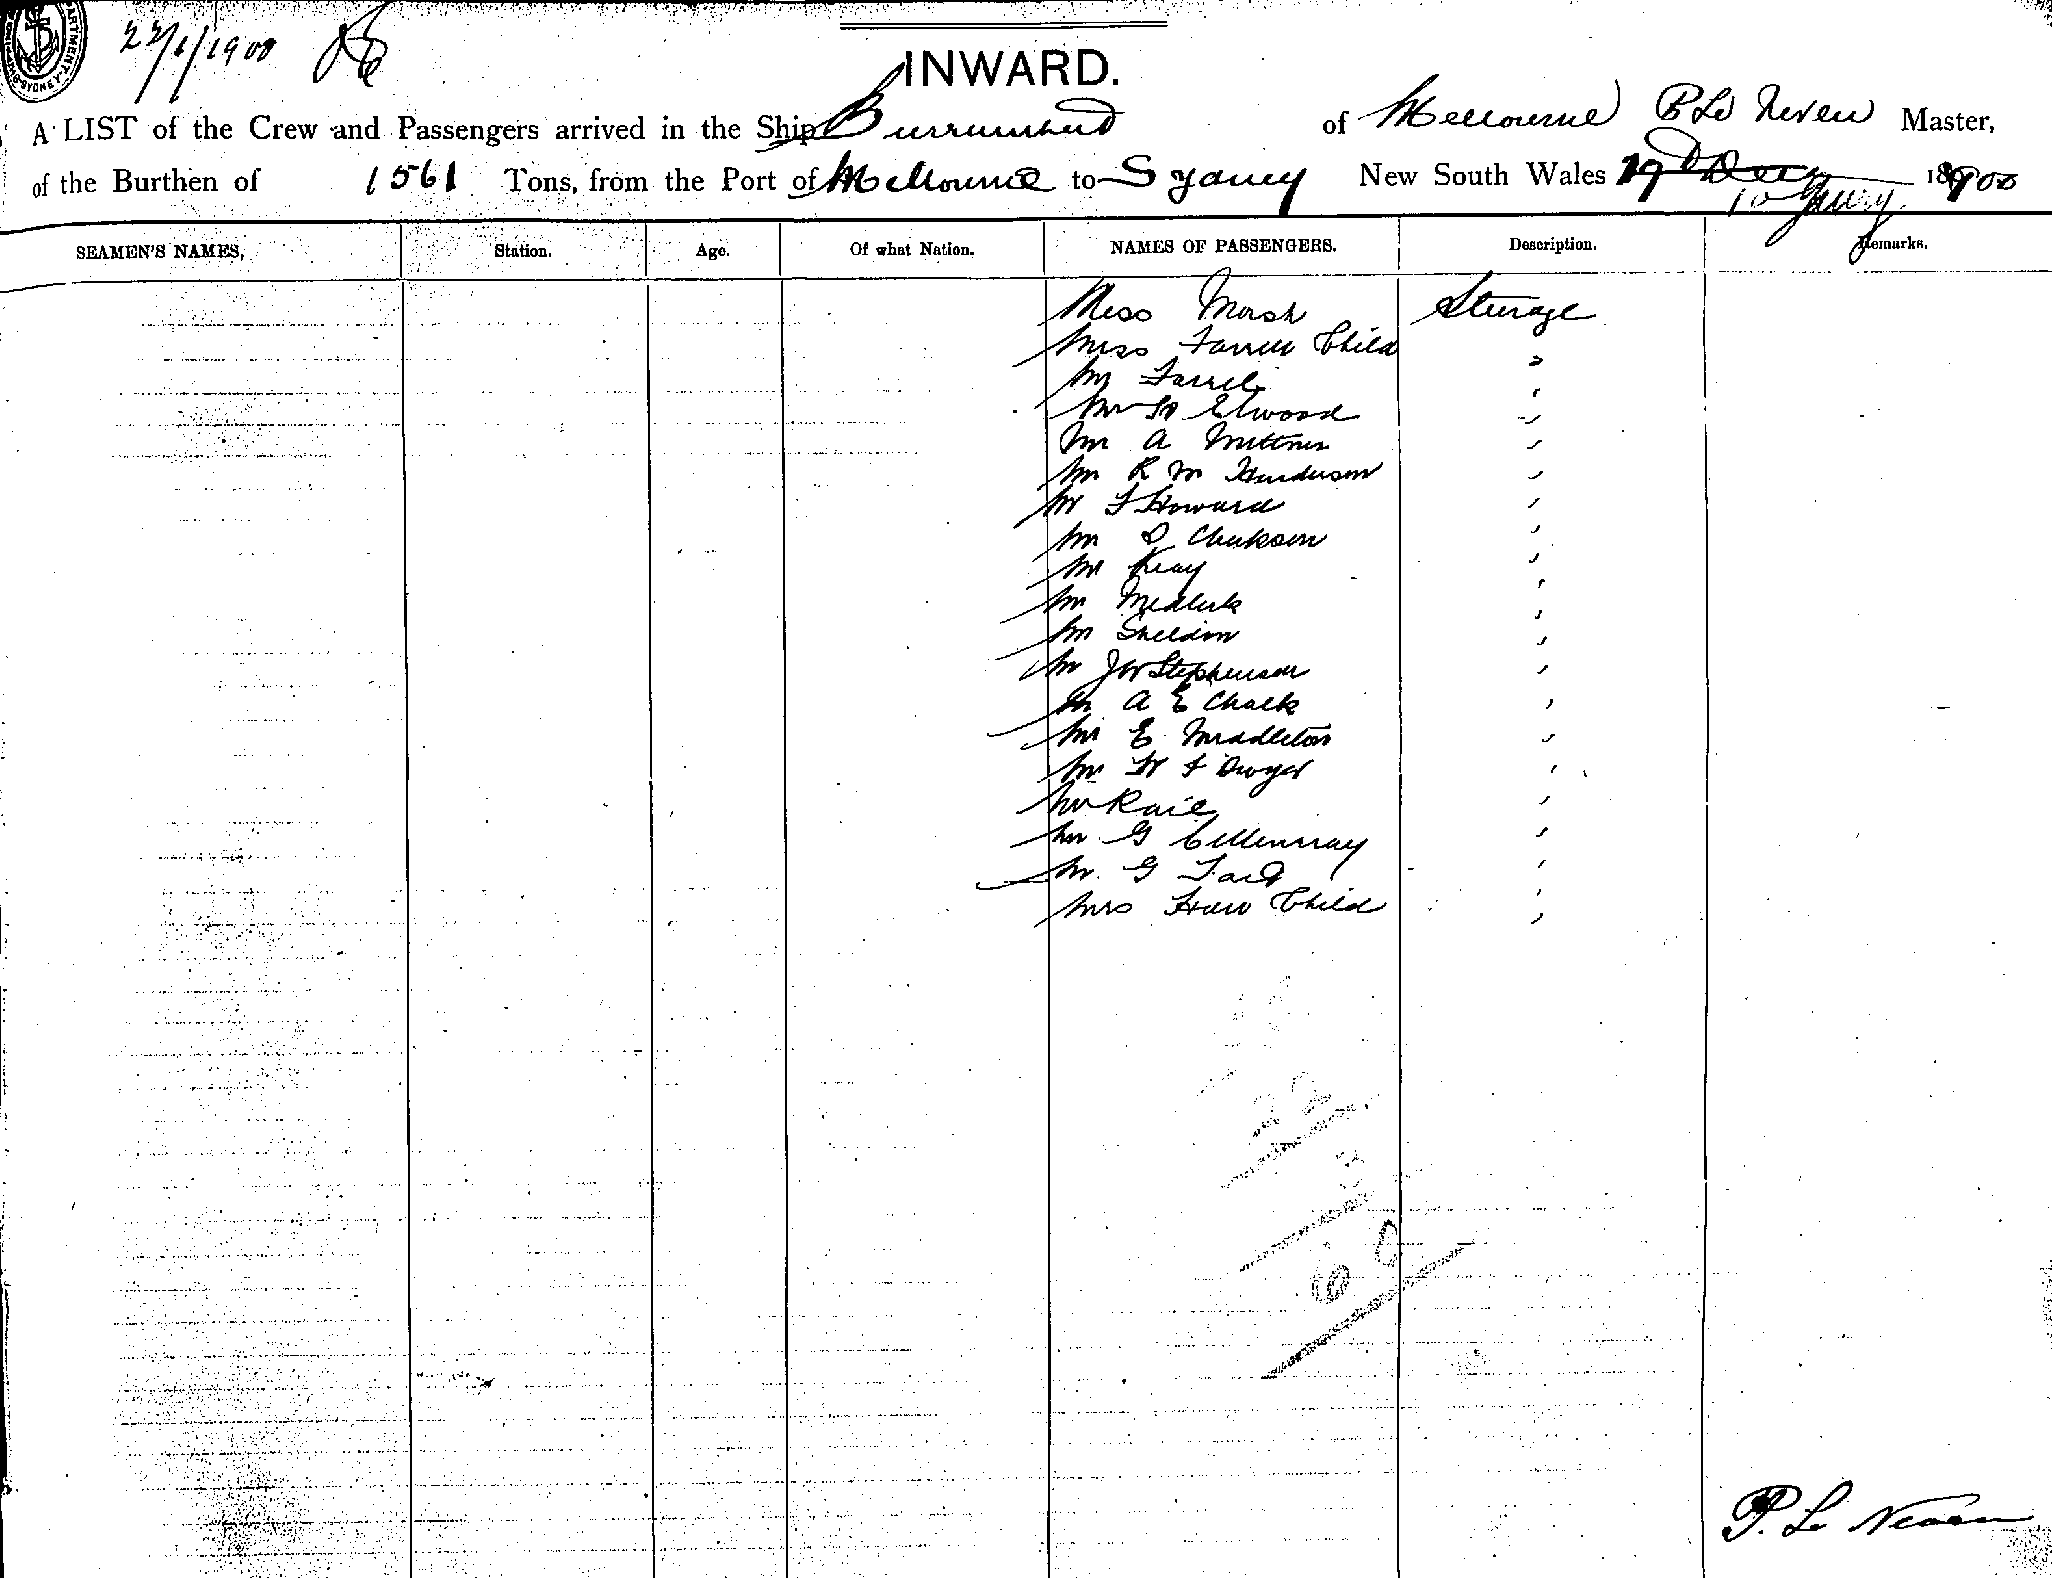 22/1/1900
INWARD.
A LIST of the Crew and Passengers arrived in the Ship Burrumbeet of Melbourne P Le Neveu Master,
of the Burthen of 1561 Tons, from the Port of Melbourne to Sydney New South Wales 19th Decr 18 1900
10 Jany
SEAMEN'S NAMES, Station. Age. Of what Nation. NAMES OF PASSENGERS. Description. Remarks.
Miss Marsh Steerage
Miss Farrell Child "
Mr Farrell "
Mr H Elwood "
Mr A Mittner "
Mr R M Henderson "
Mr F Howard "
Mr D Clarkson "
Mr Keay "
Mr Medlick "
Mr Sheldon "
Mr J W Stephenson "
Mr A E Chalk "
Mr E Middleton "
Mr W F Dwyer "
Mr Raie "
Mr G "
Mr. G Ford "
Mrs Haw Child "
22
60
P. Le Neveu